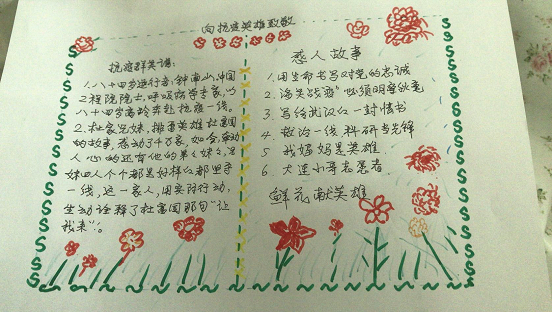 向抗疫英雄致敬
抗疫群英谱:
1.八十四岁逆行者,钟南山,中国
工程院院士,呼吸病学专家,以
八十四岁高龄奔赴抗疫一线。
2.杜家兄妹,排雷英雄杜富国
的故事,感动了千万家,如今,感动
人心的还有他的弟弟妹妹,兄
妹四人个个都是好样的都坚守
一线,这一家人,用实际行动,
生动诠释了杜富国那句“让
我来”。
感人故事
1.用生命书写对党的忠诚
2.济失战疫”必须明摩攸毫
3.写给武汉的一封情书
4.救治一线 科研当先锋
5 我妈妈是英雄
6.大连小哥志愿者
鲜花献英雄